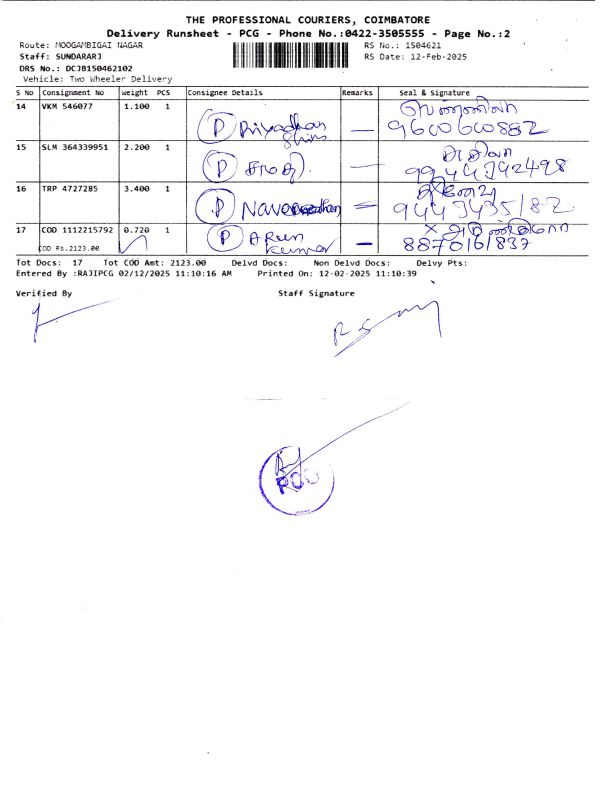 THE PROFESSIONAL COURIERS, COIMBATORE
Delivery Runsheet - PCG - Phone No.:0422-3505555 - Page No.:2
Route: MOOGAMBIGAI NAGAR RS No.: 1504621
Staff: SUNDARARJ RS Date: 12-Feb-2025
DRS No.: DCJB150462102
Vehicle: Two Wheeler Delivery
S No Consignment No Weight PCS Consignee Details Remarks Seal & Signature
14 VKM 546077 1.100 1 P Priyadhar —
9600600882
15 SLM 364339951 2.200 1 P சுமதி. —
9944342498
16 TRP 4727285 3.400 1 P —
9443435182
17 COD 1112215792 0.720 1 P ARUN —
COD Rs.2123.00 kumar 8870161837
Tot Docs: 17 Tot COD Amt: 2123.00 Delvd Docs: Non Delvd Docs: Delvy Pts:
Entered By :RAJIPCG 02/12/2025 11:10:16 AM Printed On: 12-02-2025 11:10:39
Verified By Staff Signature